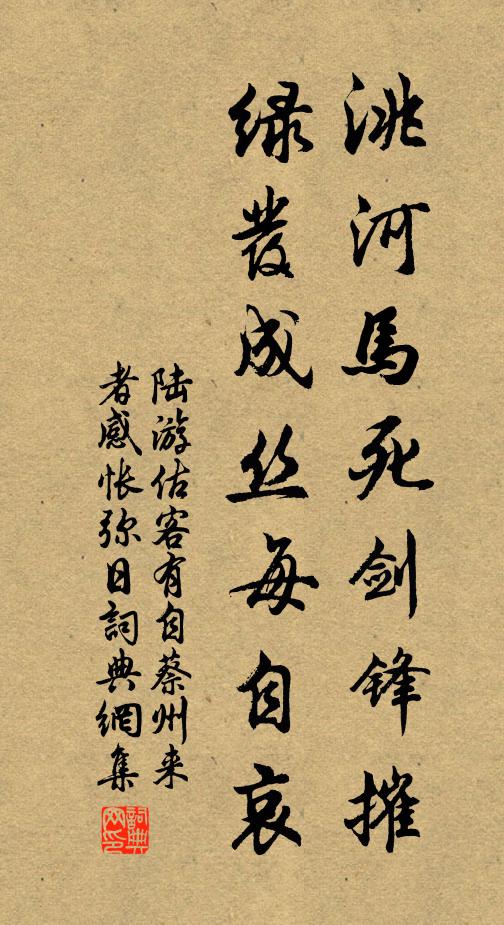 洮河馬死剑锋摧
緑發成丝每自哀
陆游估客有自蔡州来
者感怅弥日詞典網集
詞典网印